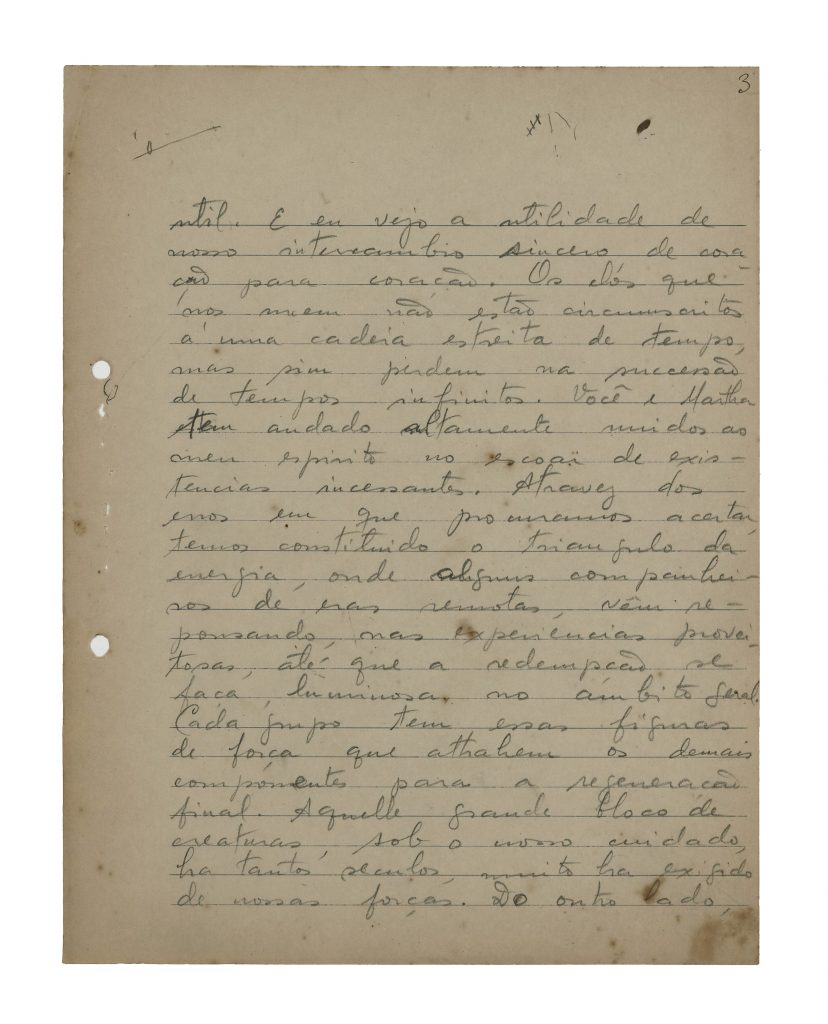 3
util. E eu vejo a utilidade de
nosso intercambio sincero de cora
ção para coração. Os élos que
nos unem não estão circumscritos
á uma cadeia estreita de tempo,
mas sim perdem na successão
de tempos infinitos. Você e Martha
tem andado altamente unidos ao
meu espirito no escoar de exis-
tencias incessantes. Atravez dos
erros em que procuramos acertar,
temos constituido o triangulo da
energia, onde alguns companhei-
ros de eras remotas, vêm re-
pousando, nas experiencias provei-
tosas, até que a redempção se
faça, luminosa no ambito geral.
Cada grupo tem essas figuras
de força que attrahem os demais
componentes para a regeneração
final. Aquelle grande bloco de
creaturas, sob o nosso cuidado,
ha tantos seculos, muito ha exigido
de nossas forças. Do outro lado,